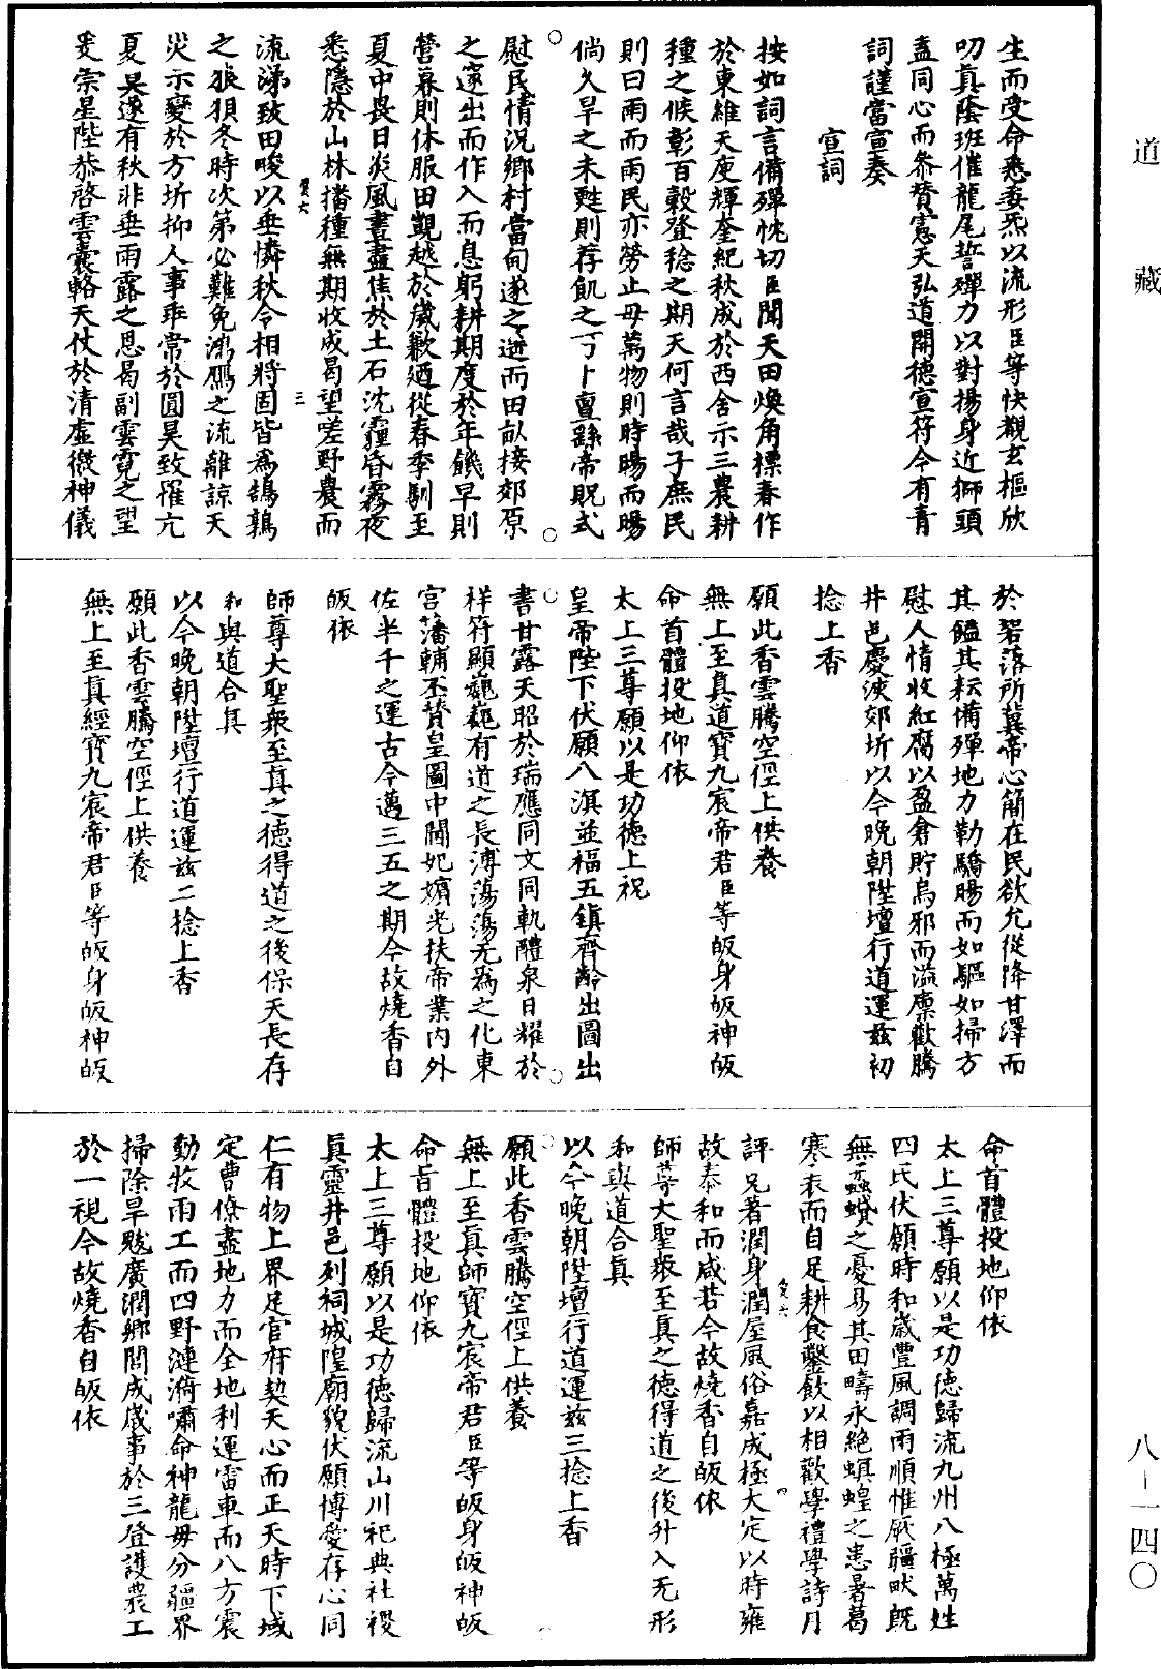 道藏
生而受命悉委炁以流形臣等快觀玄樞欣
叨真蔭班催龍尾誓殫力以對揚身近獅頭
盍同心而叅贊憲天弘道開德宣符今有青
詞謹當宣奏
宣詞
按如詞言備殫忱切臣聞天田煥角標春作
於東維天庾輝奎紀秋成於西舍示三農耕
種之候彰百穀登稔之期天何言哉子庶民
則曰雨而雨民亦勞止毋萬物則時暘而暘
倘久旱之未甦則荐飢之丁卜亶繇帝貺式
慰民情況鄉村當甸遂之遊而田畝接郊原
之邃出而作入而息躬耕期度於年饑早則
營暮則休服田覬越於歲歉廼從春季馴至
夏中畏日炎風晝盡焦於土石沈霾昏霧夜
悉隱於山林播種無期收成曷望嗟野農而
流涕致田畯以垂憐秋令相將固皆為鵠鶉
之狼狽冬時次第必難免鴻鴈之流離諒天
災示變於方圻抑人事乖常於圓昊致罹亢
夏昊遂有秋非垂雨露之恩曷副雲霓之望
爰崇星陛恭啓雲囊輅天仗於清虛微神儀
於碧落所冀帝心簡在民欲允從降甘澤而
其饁其耘備殫地力勒驕暘而如驅如掃方
慰人情收紅腐以盈倉貯烏邪而溢廪歡騰
井邑慶浹郊圻以今晚朝陞壇行道運兹初
捻上香
願此香雲騰空徑上供養
無上至真道寶九宸帝君臣等皈身皈神皈
命首體投地仰依
太上三尊願以是功德上祝
皇帝陛下伏願八溟並福五鎮齊齡出圖出
書甘露天昭於瑞應同文同軌醴泉日耀於
祥符顯巍巍有道之長溥蕩蕩无為之化東
宮藩輔丕贊皇圖中闈妃嬪光扶帝業内外
佐半千之運古今邁三五之期今故燒香自
皈依
師尊大聖衆至真之德得道之後保天長存
和與道合真
以今晚朝陞壇行道運兹二捻上香
願此香雲騰空徑上供養
無上至真經寶九宸帝君臣等皈身皈神皈
命首體投地仰依
太上三尊願以是功德歸流九州八極萬姓
四民伏願時和歲豐風調雨順惟厥疆畎既
無蟊蟘之憂易其田疇永絶螟蝗之患暑葛
寒衣而自足耕食鑿飲以相歡學禮學詩月
評兄著潤身潤屋風俗嘉成極大定以時雍
故泰和而咸若今故燒香自皈依
師尊大聖衆至真之德得道之後升入无形
和與道合真
以今晚朝陞壇行道運兹三捻上香
願此香雲騰空徑上供養
無上至真師寶九宸帝君臣等皈身皈神皈
命首體投地仰依
太上三尊願以是功德歸流山川祀典社稷
真靈井邑列祠城隍廟貌伏願博愛存心同
仁有物上界足官府契天心而正天時下域
定曹僚盡地力而全地利運雷車而八方震
動收雨工而四野漣漪嘯命神龍毋分疆界
掃除旱魃廣潤鄉閭成歲事於三登護農工
於一視今故燒香自皈依
八—一四〇